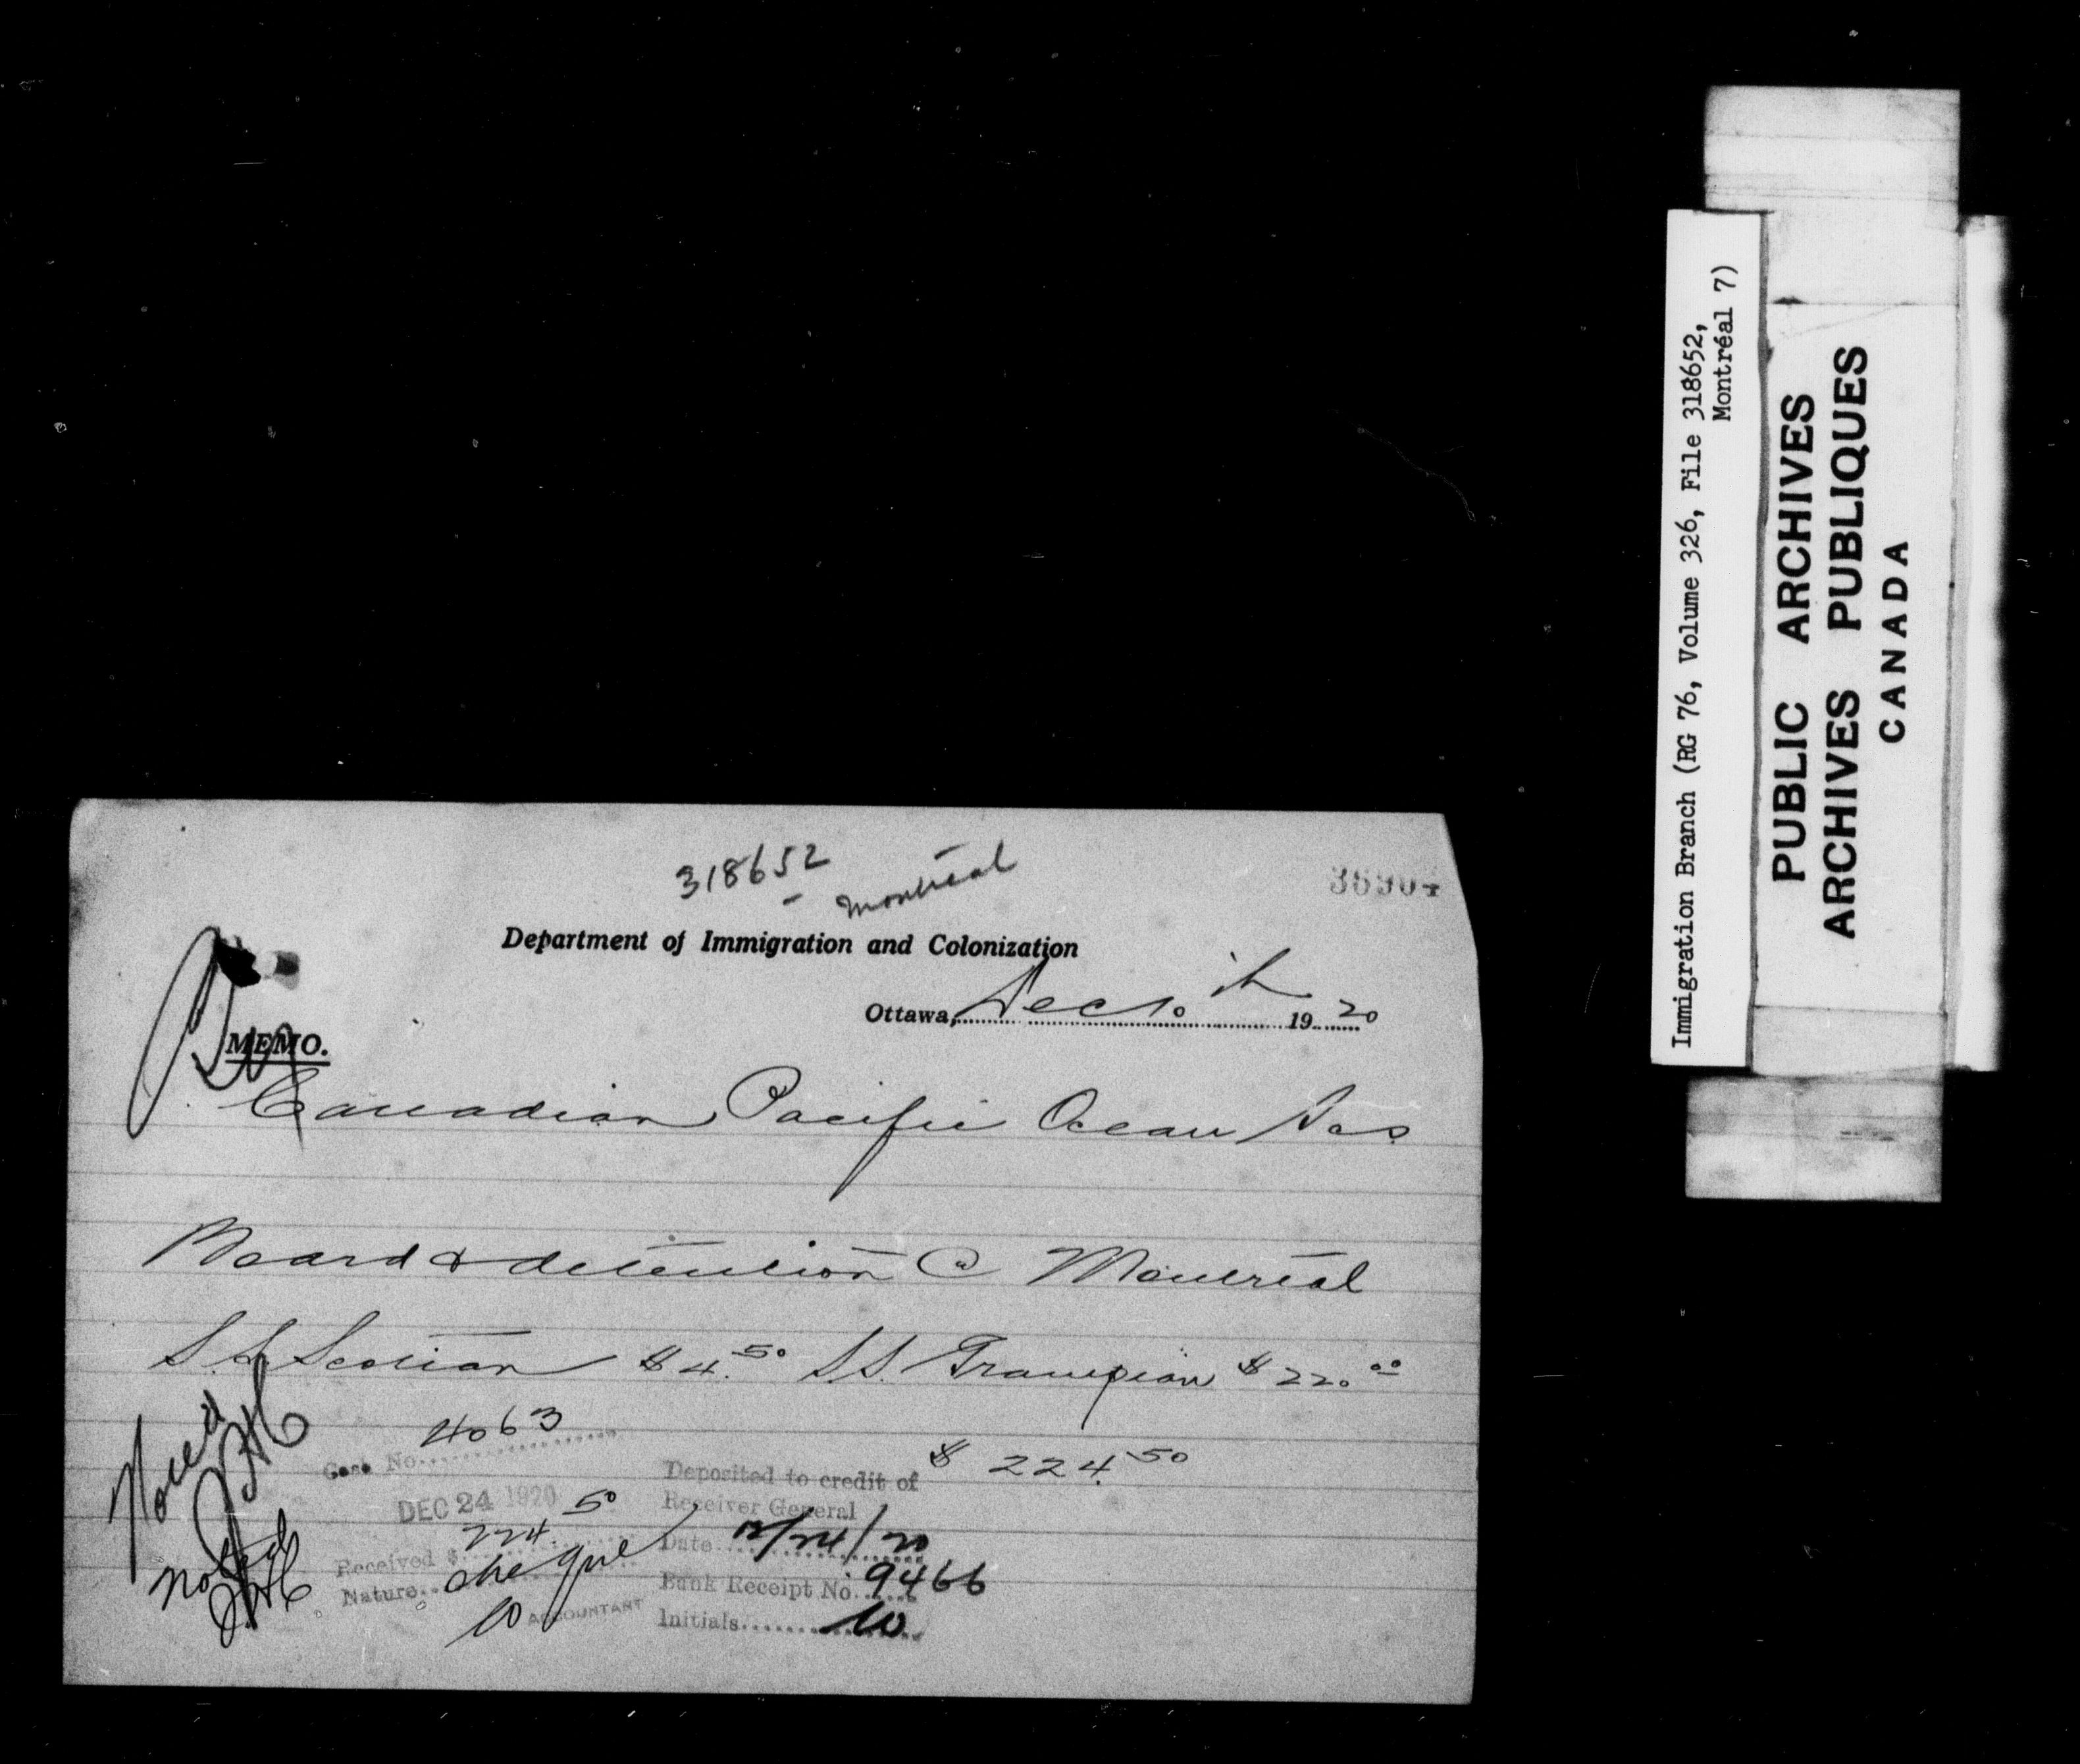 318652
- Montreal
36904
Department of Immigration and Colonization
Ottawa, Dec 10th 1920
MEMO.
Canadian Pacific Ocean Ses
Board & detention @ Montreal
S.S. Scotian $4.50 S.S. Grampian $220.00
$ 224.50
Noted
Noted
Case No. 4063
DEC 24 1920
Received $ 224.50
Nature cheque
ACCOUNTANT
Deposited to credit of
Receiver General
Date 12/24/20
Bank Receipt No. 9466
Initials
Immigration Branch (RG 76, Volume 326, File 318652,
Montréal 7)
PUBLIC ARCHIVES
ARCHIVES PUBLIQUES
CANADA